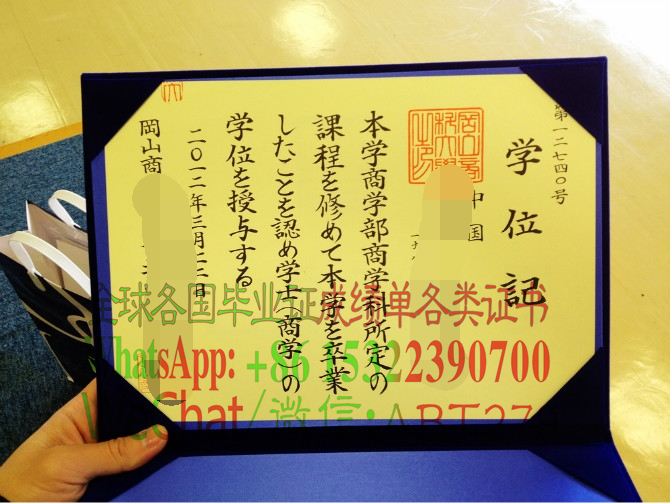 第一二七四〇号
学位記
中国
本学商学部商学科所定の
課程を修めて本学を卒業
したことを認め学士(商学)の
学位を授与する
二〇一二年三月二二日
岡山商
全球各国毕业证成绩单各类证书
WhatsApp: +86 15322390700
WeChat/微信: